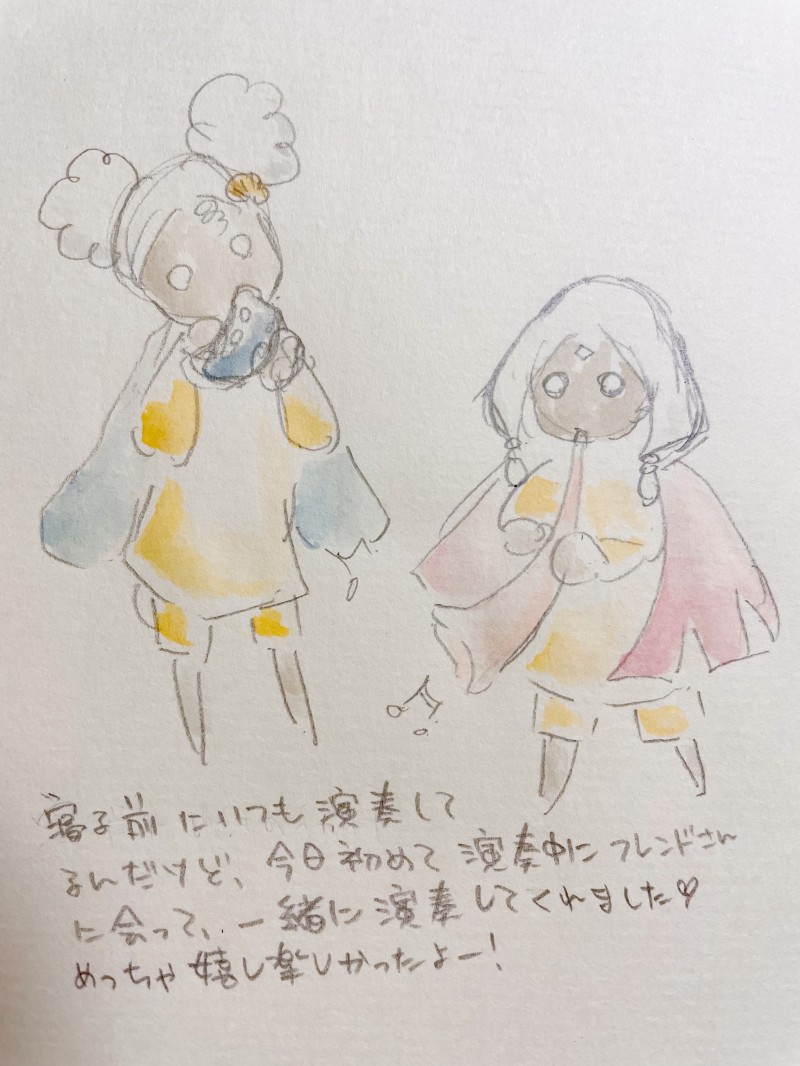 寝る前にいつも演奏して
るんだけど、今日初めて演奏中にフレンドさん
に会って、一緒に演奏してくれました♡
めっちゃ嬉し楽しかったよー!